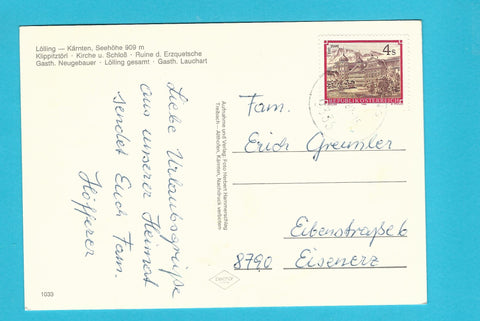 Lölling — Kärnten, Seehöhe 909 m
Klippitztörl · Kirche u. Schloß · Ruine d. Erzquetsche
Gasth. Neugebauer · Lölling gesamt · Gasth. Lauchart
Liebe Urlaubsgrüße
aus unserer Heimat
sendet Euch Fam.
Höfferer
Aufnahme und Verlag: Foto Norbert Hammerschlag
Treibach - Althofen, Kärnten, Nachdruck verboten
4 s
REPUBLIK ÖSTERREICH
Fam.
Erich
Eibenstraße 6
8790 Eisenerz
1033